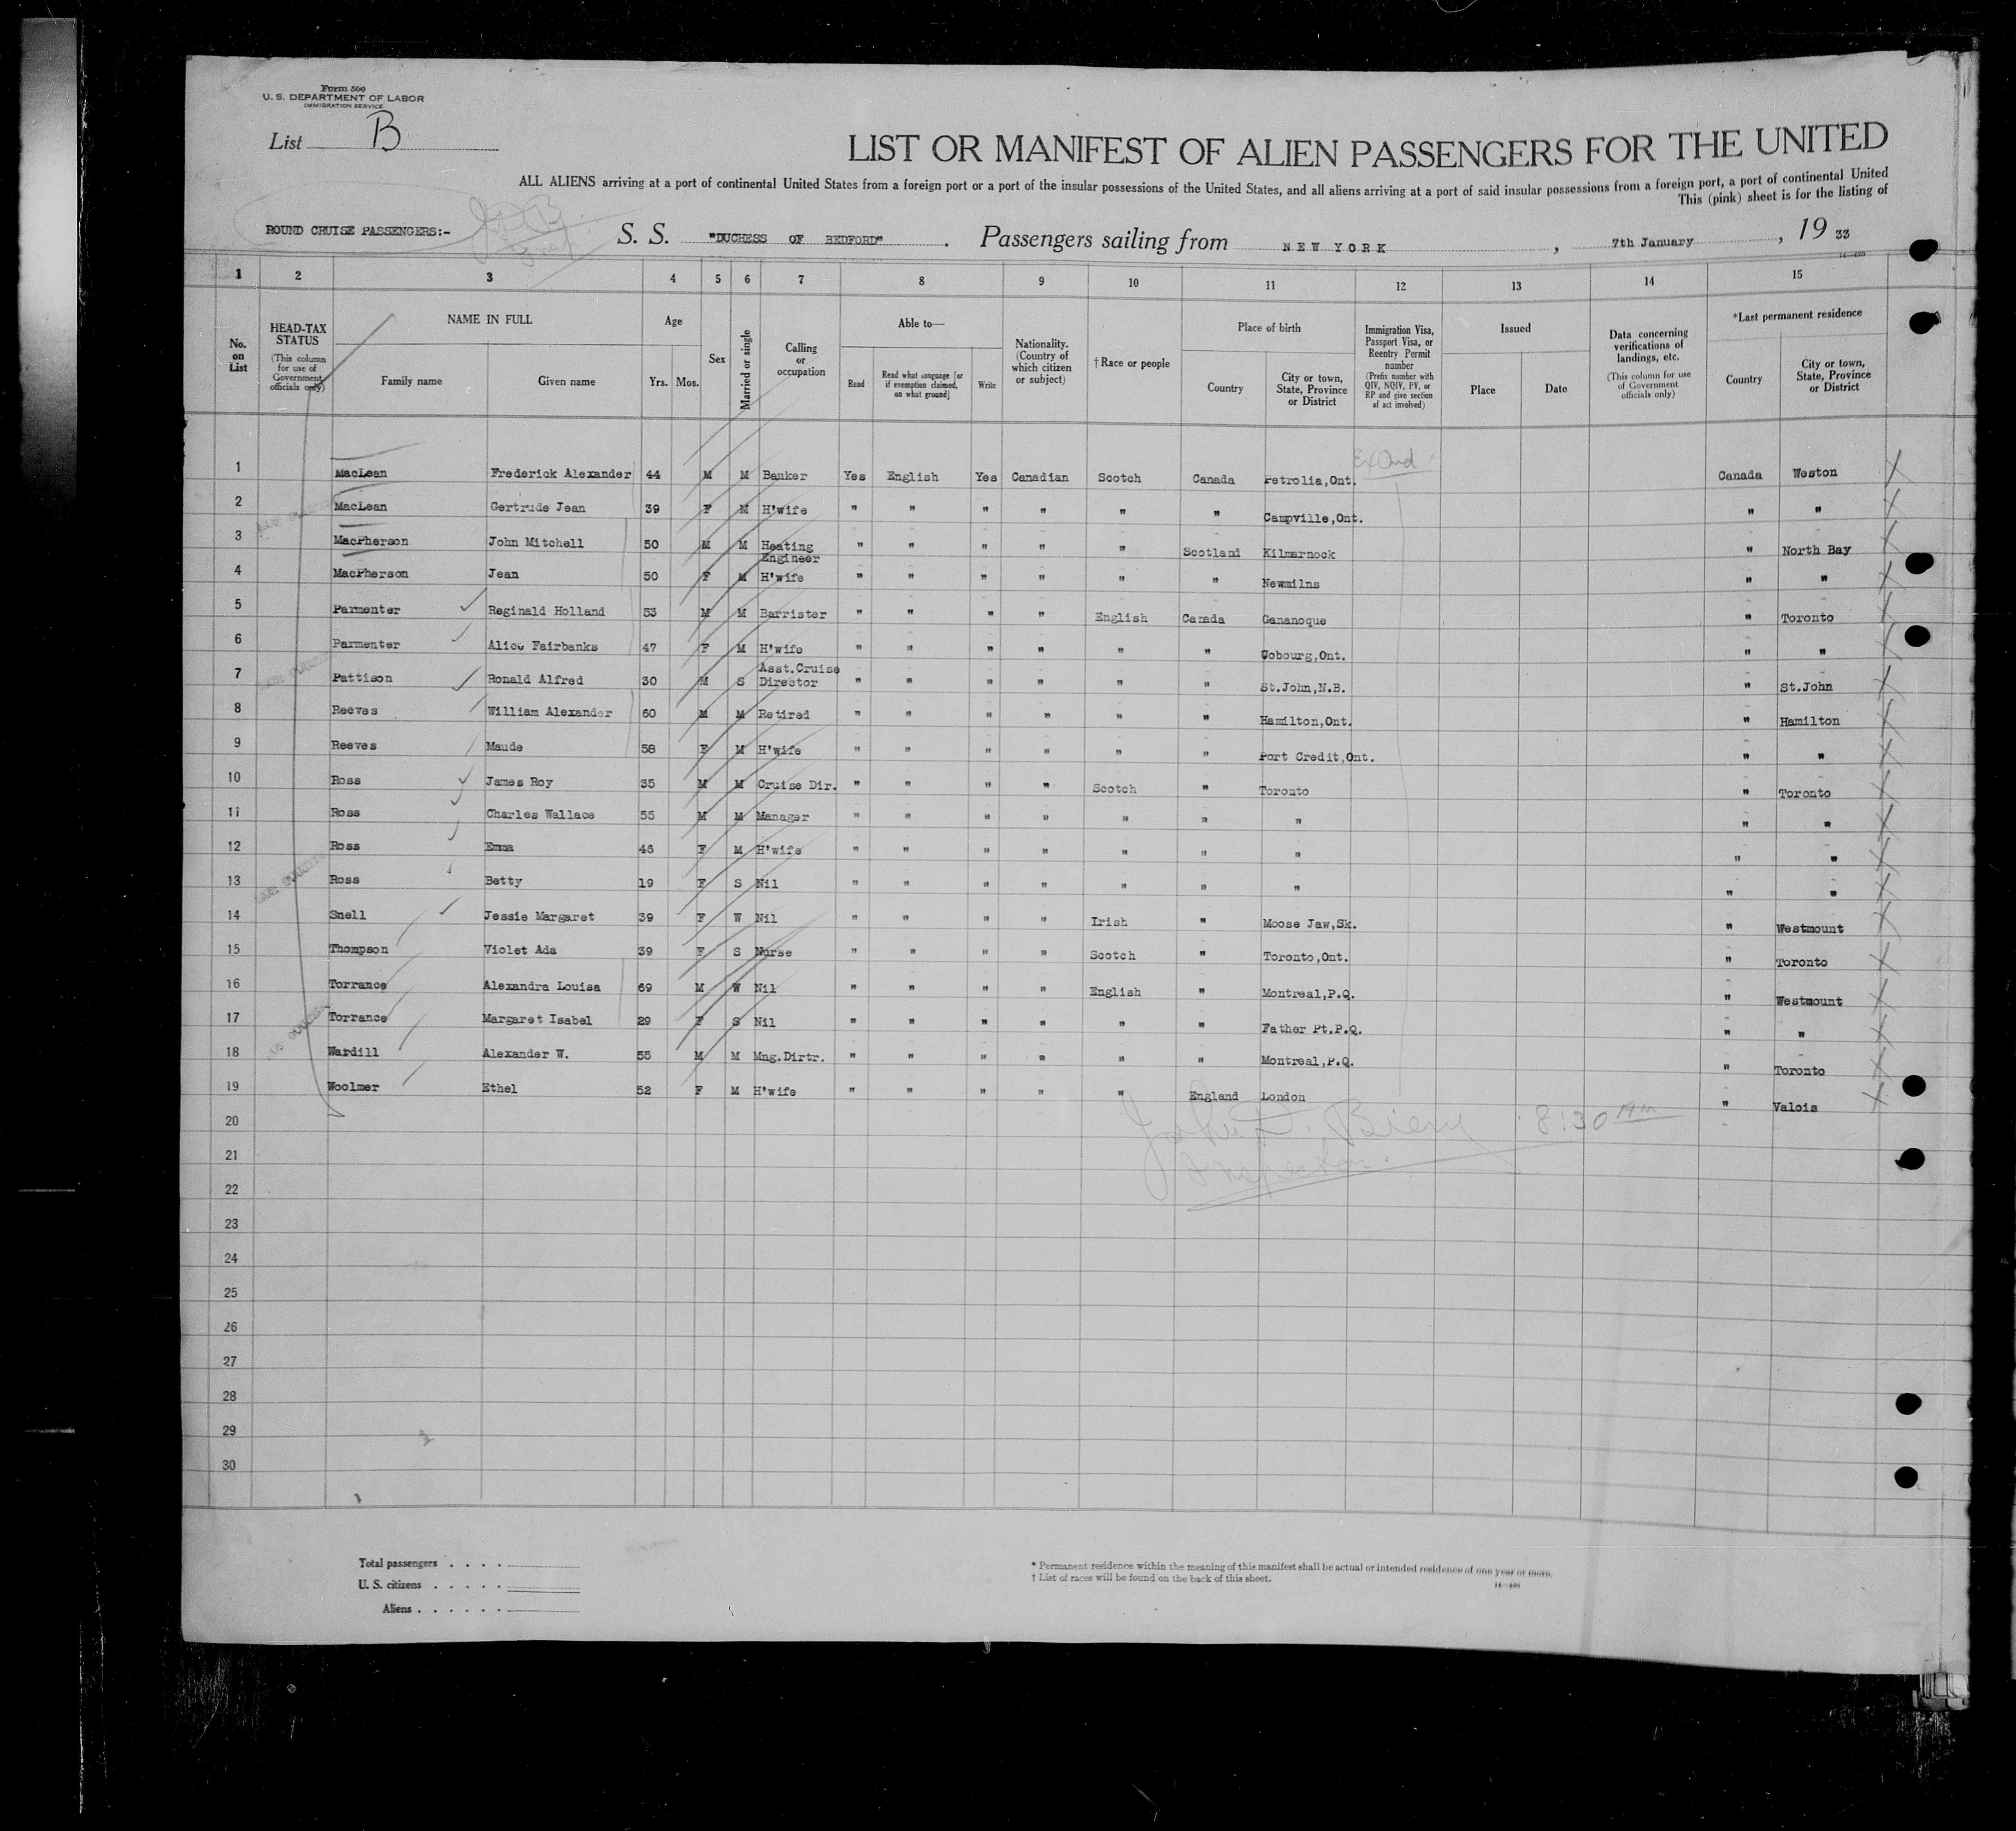 Form 500
U. S. DEPARTMENT OF LABOR
IMMIGRATION SERVICE
List B
LIST OR MANIFEST OF ALIEN PASSENGERS FOR THE UNITED
ALL ALIENS arriving at a port of continental United States from a foreign port or a port of the insular possessions of the United States, and all aliens arriving at a port of said insular possessions from a foreign port, a port of continental United
This (pink) sheet is for the listing of
ROUND CRUISE PASSENGERS:- S. S. "DUCHESS OF BEDFORD" . Passengers sailing from NEW YORK , 7th January , 19 33
1 2 3 4 5 6 7 8 9 10 11 12 13 14 15
No. on List
HEAD-TAX STATUS (This column for use of Government officials only)
NAME IN FULL Family name Given name
Age Yrs. Mos.
Sex
Married or single
Calling or occupation
Able to— Read Read what language [or if exemption claimed, on what ground] Write
Nationality. (Country of which citizen or subject)
†Race or people
Place of birth Country City or town, State, Province or District
Immigration Visa, Passport Visa, or Reentry Permit number (Prefix number with QIV, NQIV, PV, or RP and give section of act involved)
Issued Place Date
Data concerning verifications of landings, etc. (This column for use of Government officials only)
*Last permanent residence Country City or town, State, Province or District
1 MacLean Frederick Alexander 44 M M Banker Yes English Yes Canadian Scotch Canada Petrolia,Ont. Canada Weston
2 MacLean Gertrude Jean 39 F M H'wife " " " " " " Campville,Ont. " "
3 MacPherson John Mitchell 50 M M Heating Engineer " " " " " Scotland Kilmarnock " North Bay
4 MacPherson Jean 50 F M H'wife " " " " " " Newmilns " "
5 Parmenter Reginald Holland 53 M M Barrister " " " " English Canada Gananoque " Toronto
6 Parmenter Alice Fairbanks 47 F M H'wife " " " " " " Cobourg,Ont. " "
7 Pattison Ronald Alfred 30 M S Asst.Cruise Director " " " " " " St.John,N.B. " St.John
8 Reeves William Alexander 60 M M Retired " " " " " " Hamilton,Ont. " Hamilton
9 Reeves Maude 58 F M H'wife " " " " " " Port Credit,Ont. " "
10 Ross James Roy 35 M M Cruise Dir. " " " " Scotch " Toronto " Toronto
11 Ross Charles Wallace 55 M M Manager " " " " " " " " "
12 Ross Emma 46 F M H'wife " " " " " " " " "
13 Ross Betty 19 F S Nil " " " " " " " " "
14 Snell Jessie Margaret 39 F W Nil " " " " Irish " Moose Jaw,Sk. " Westmount
15 Thompson Violet Ada 39 F S Nurse " " " " Scotch " Toronto,Ont. " Toronto
16 Torrance Alexandra Louisa 69 M W Nil " " " " English " Montreal,P.Q. " Westmount
17 Torrance Margaret Isabel 29 F S Nil " " " " " " Father Pt.P.Q. " "
18 Wardill Alexander W. 55 M M Mng.Dirtr. " " " " " " Montreal,P.Q. " Toronto
19 Woolmer Ethel 52 F M H'wife " " " " " England London " Valois
20
8:30 AM
Inspector
21
22
23
24
25
26
27
28
29
30
Total passengers . . . .
U. S. citizens . . . . .
Aliens . . . . . .
* Permanent residence within the meaning of this manifest shall be actual or intended residence of one year or more.
† List of races will be found on the back of this sheet.